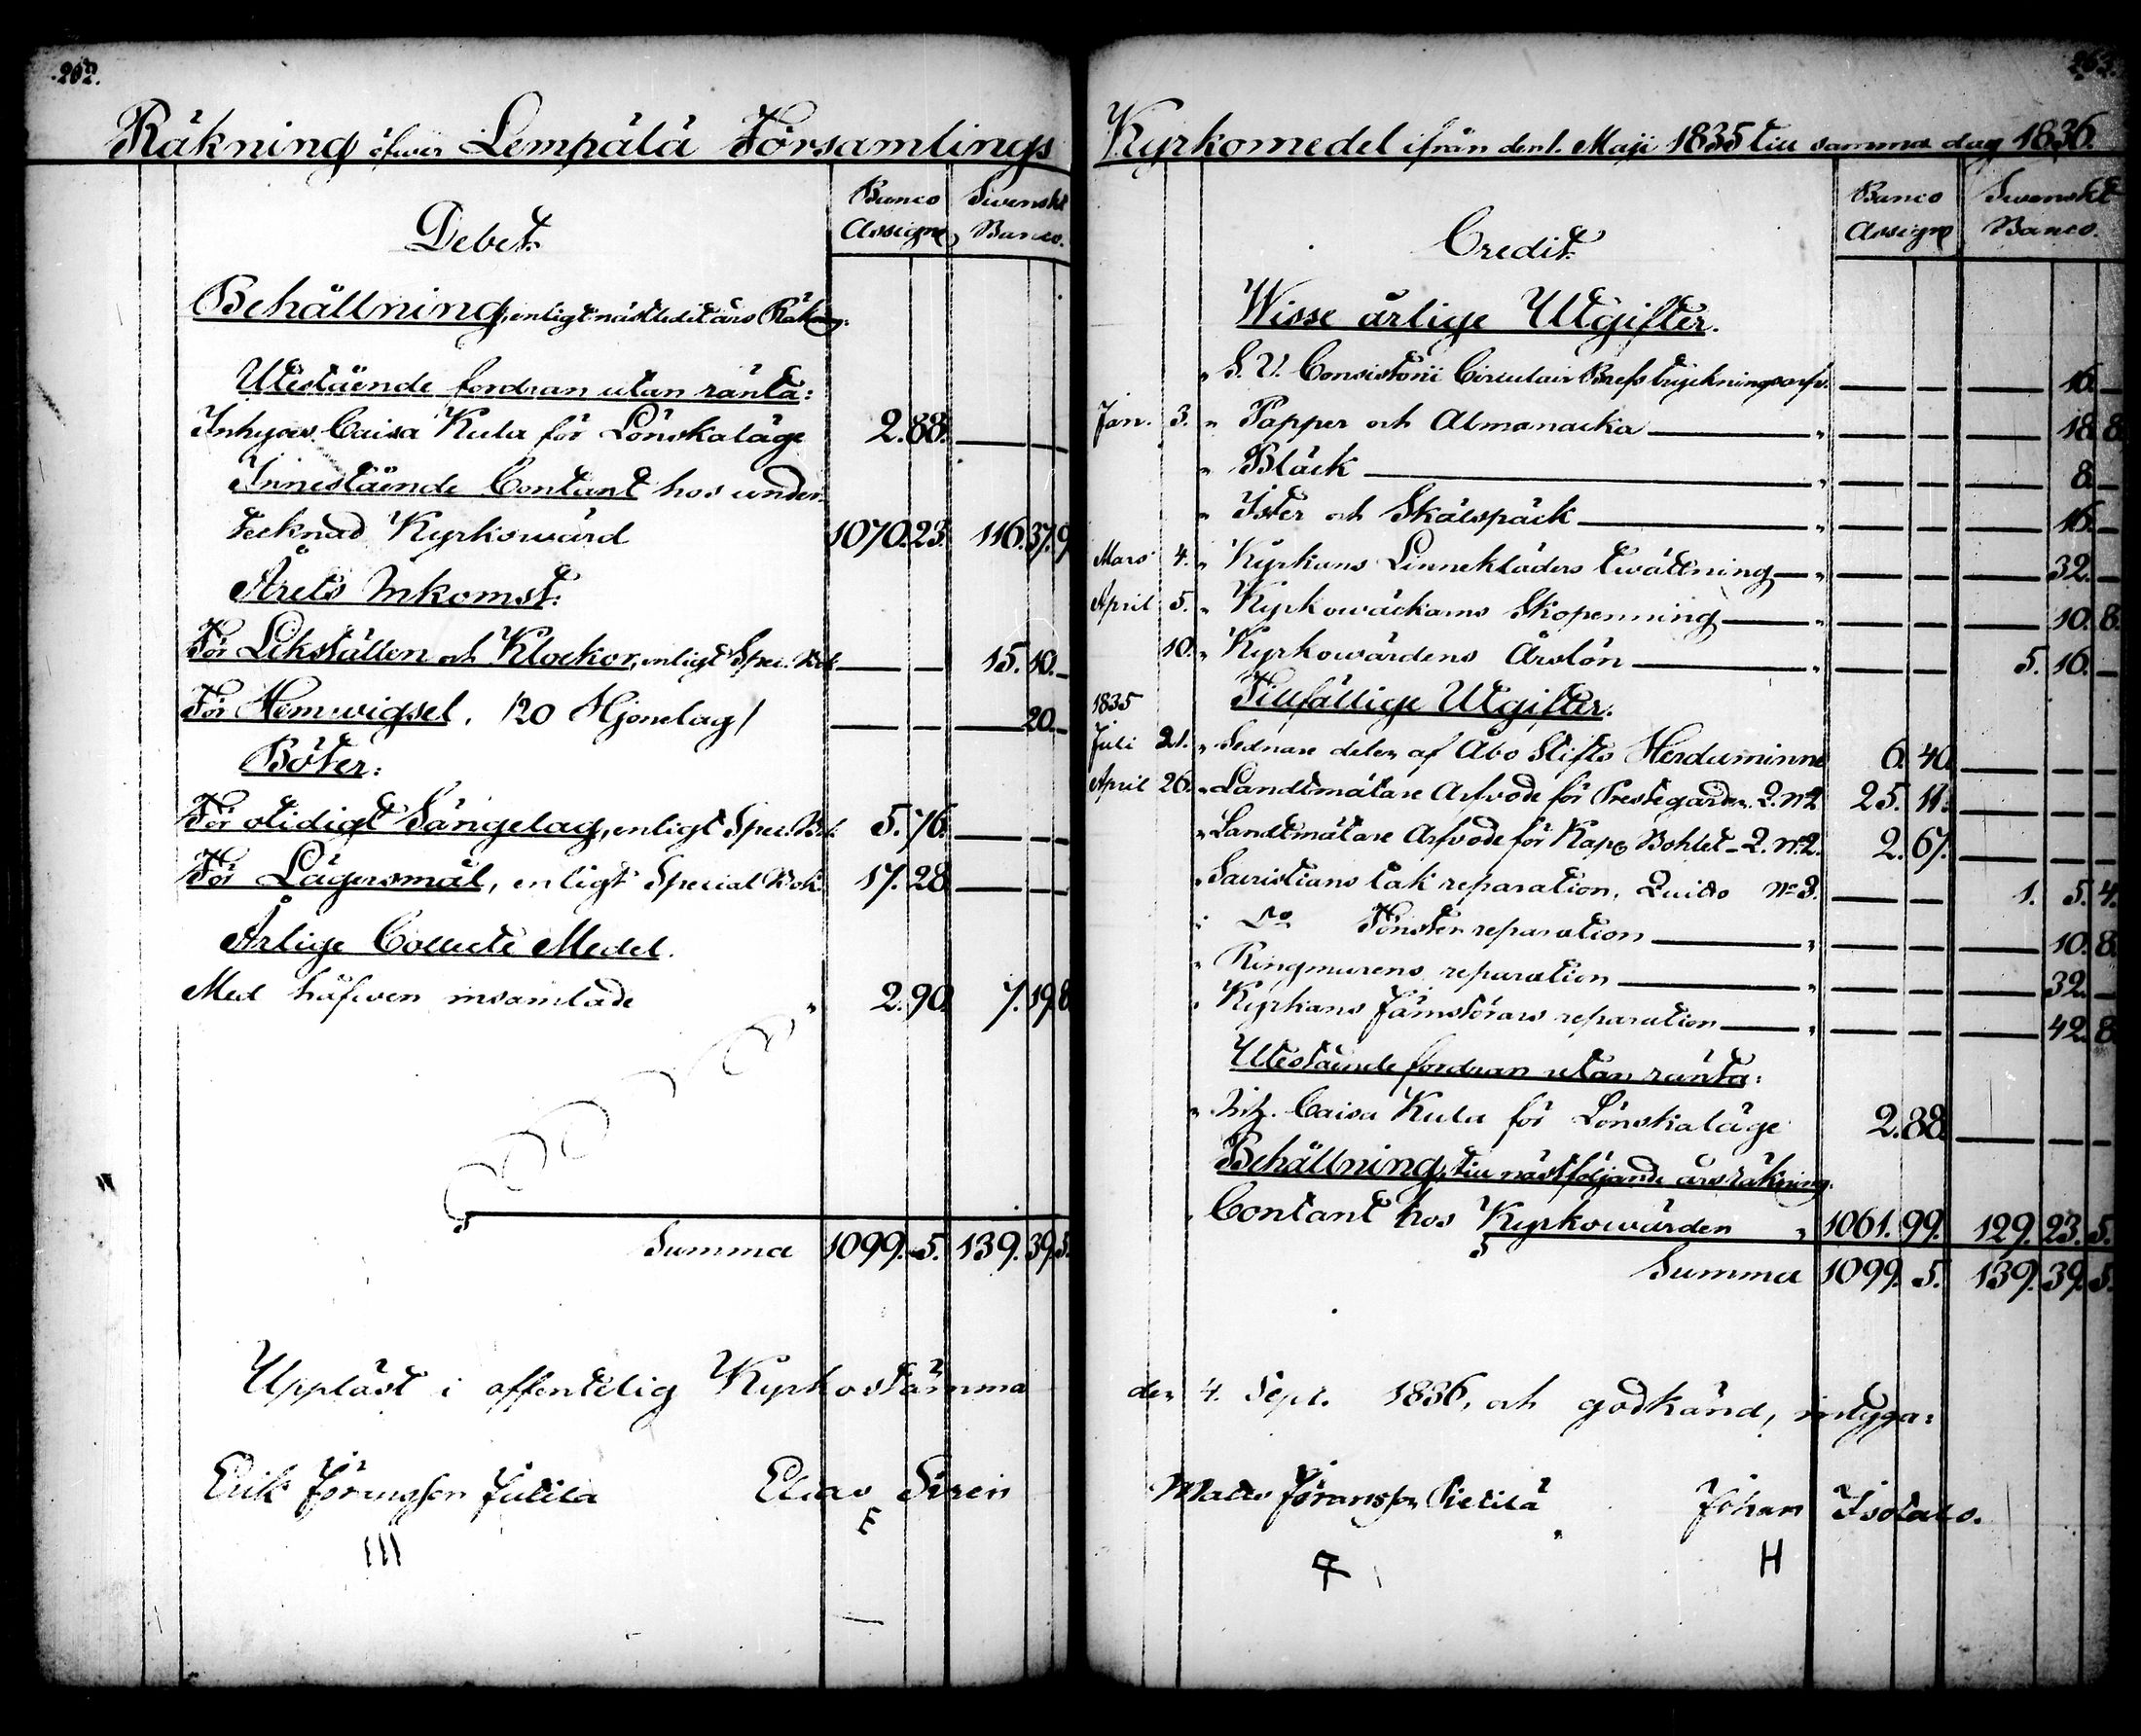 202.
Räkning öfwer Lempälä Församlings
Debet.
Banco Assign.
Swenskt Banco.
Behållning, enligt nästledit års Räkning:
Utestående fordran utan ränta:
Inhyses Caisa Kula för Lönskaläge 2. 88.
Innestående Contant hos under-
tecknad Kyrkowärd 1070. 23. 116. 37. 9
Årets Inkomst:
För Likställen och Klockor, enligt Spec. Bok. 15. 10.
För Hemwigsel, /20 Hjonelag/ 20.
Böter:
För otidigt Sängelag, enligt Spec. Bok. 5. 76.
För Lägersmål, enligt Special Bok. 17. 28
Årlige Collecte Medel.
Med håfwen insamlade " 2. 90. 7. 19. 8
Summa 1099. 5. 139. 39. 5.
Uppläst i offentelig Kyrkostämma
Erik Jöransson Jutila Elias Siren
III E
Kyrkomedel ifrån den 1. Maji 1835 till samma dag 1836.
Credit.
Banco Assign
Swenskt Banco.
Wisse årlige Utgifter.
" S. V. Consistorii Circulair Brefs tryckningsarfv. 16.
Jan. 3. " Papper och Almanacka " 18. 8.
" Bläck " 8.
" Ister och Skälspäck " 16.
Mars 4. " Kyrkans Linnekläders twättning " 32.
April 5. " Kyrkowäckarns Skopenning " 10. 8.
10. " Kyrkowärdens Årslön " 5. 16.
1835 Tillfällige Utgifter:
Juli 21. " Sednare delen af Åbo Stifts Herdaminne 6. 40.
April 26. " Landtmätare Arfvode för Prestegården. Q. N:2 25. 11.
" Landtmätare Arfvode för Kap. Bohlet - Q. N:2. 2. 67.
" Sacristians tak reparation, Quitto N:3. 1. 5. 4.
" D:o Fönster reparation " 10. 8.
" Ringmurens reparation " 32.
" Kyrkans Jämstörars reparation " 42. 8.
Utestående fordran utan ränta:
" Inh. Caisa Kula för Lönskaläge 2. 88.
Behållning, till nästföljande års räkning.
" Contant hos Kyrkowärden " 1061. 99. 129. 23. 5.
Summa 1099. 5. 139. 39. 5.
den 4. Sept. 1836, och godkänd, intyga:
Matts Jöransson Pietilä Johan Isotalo.
H